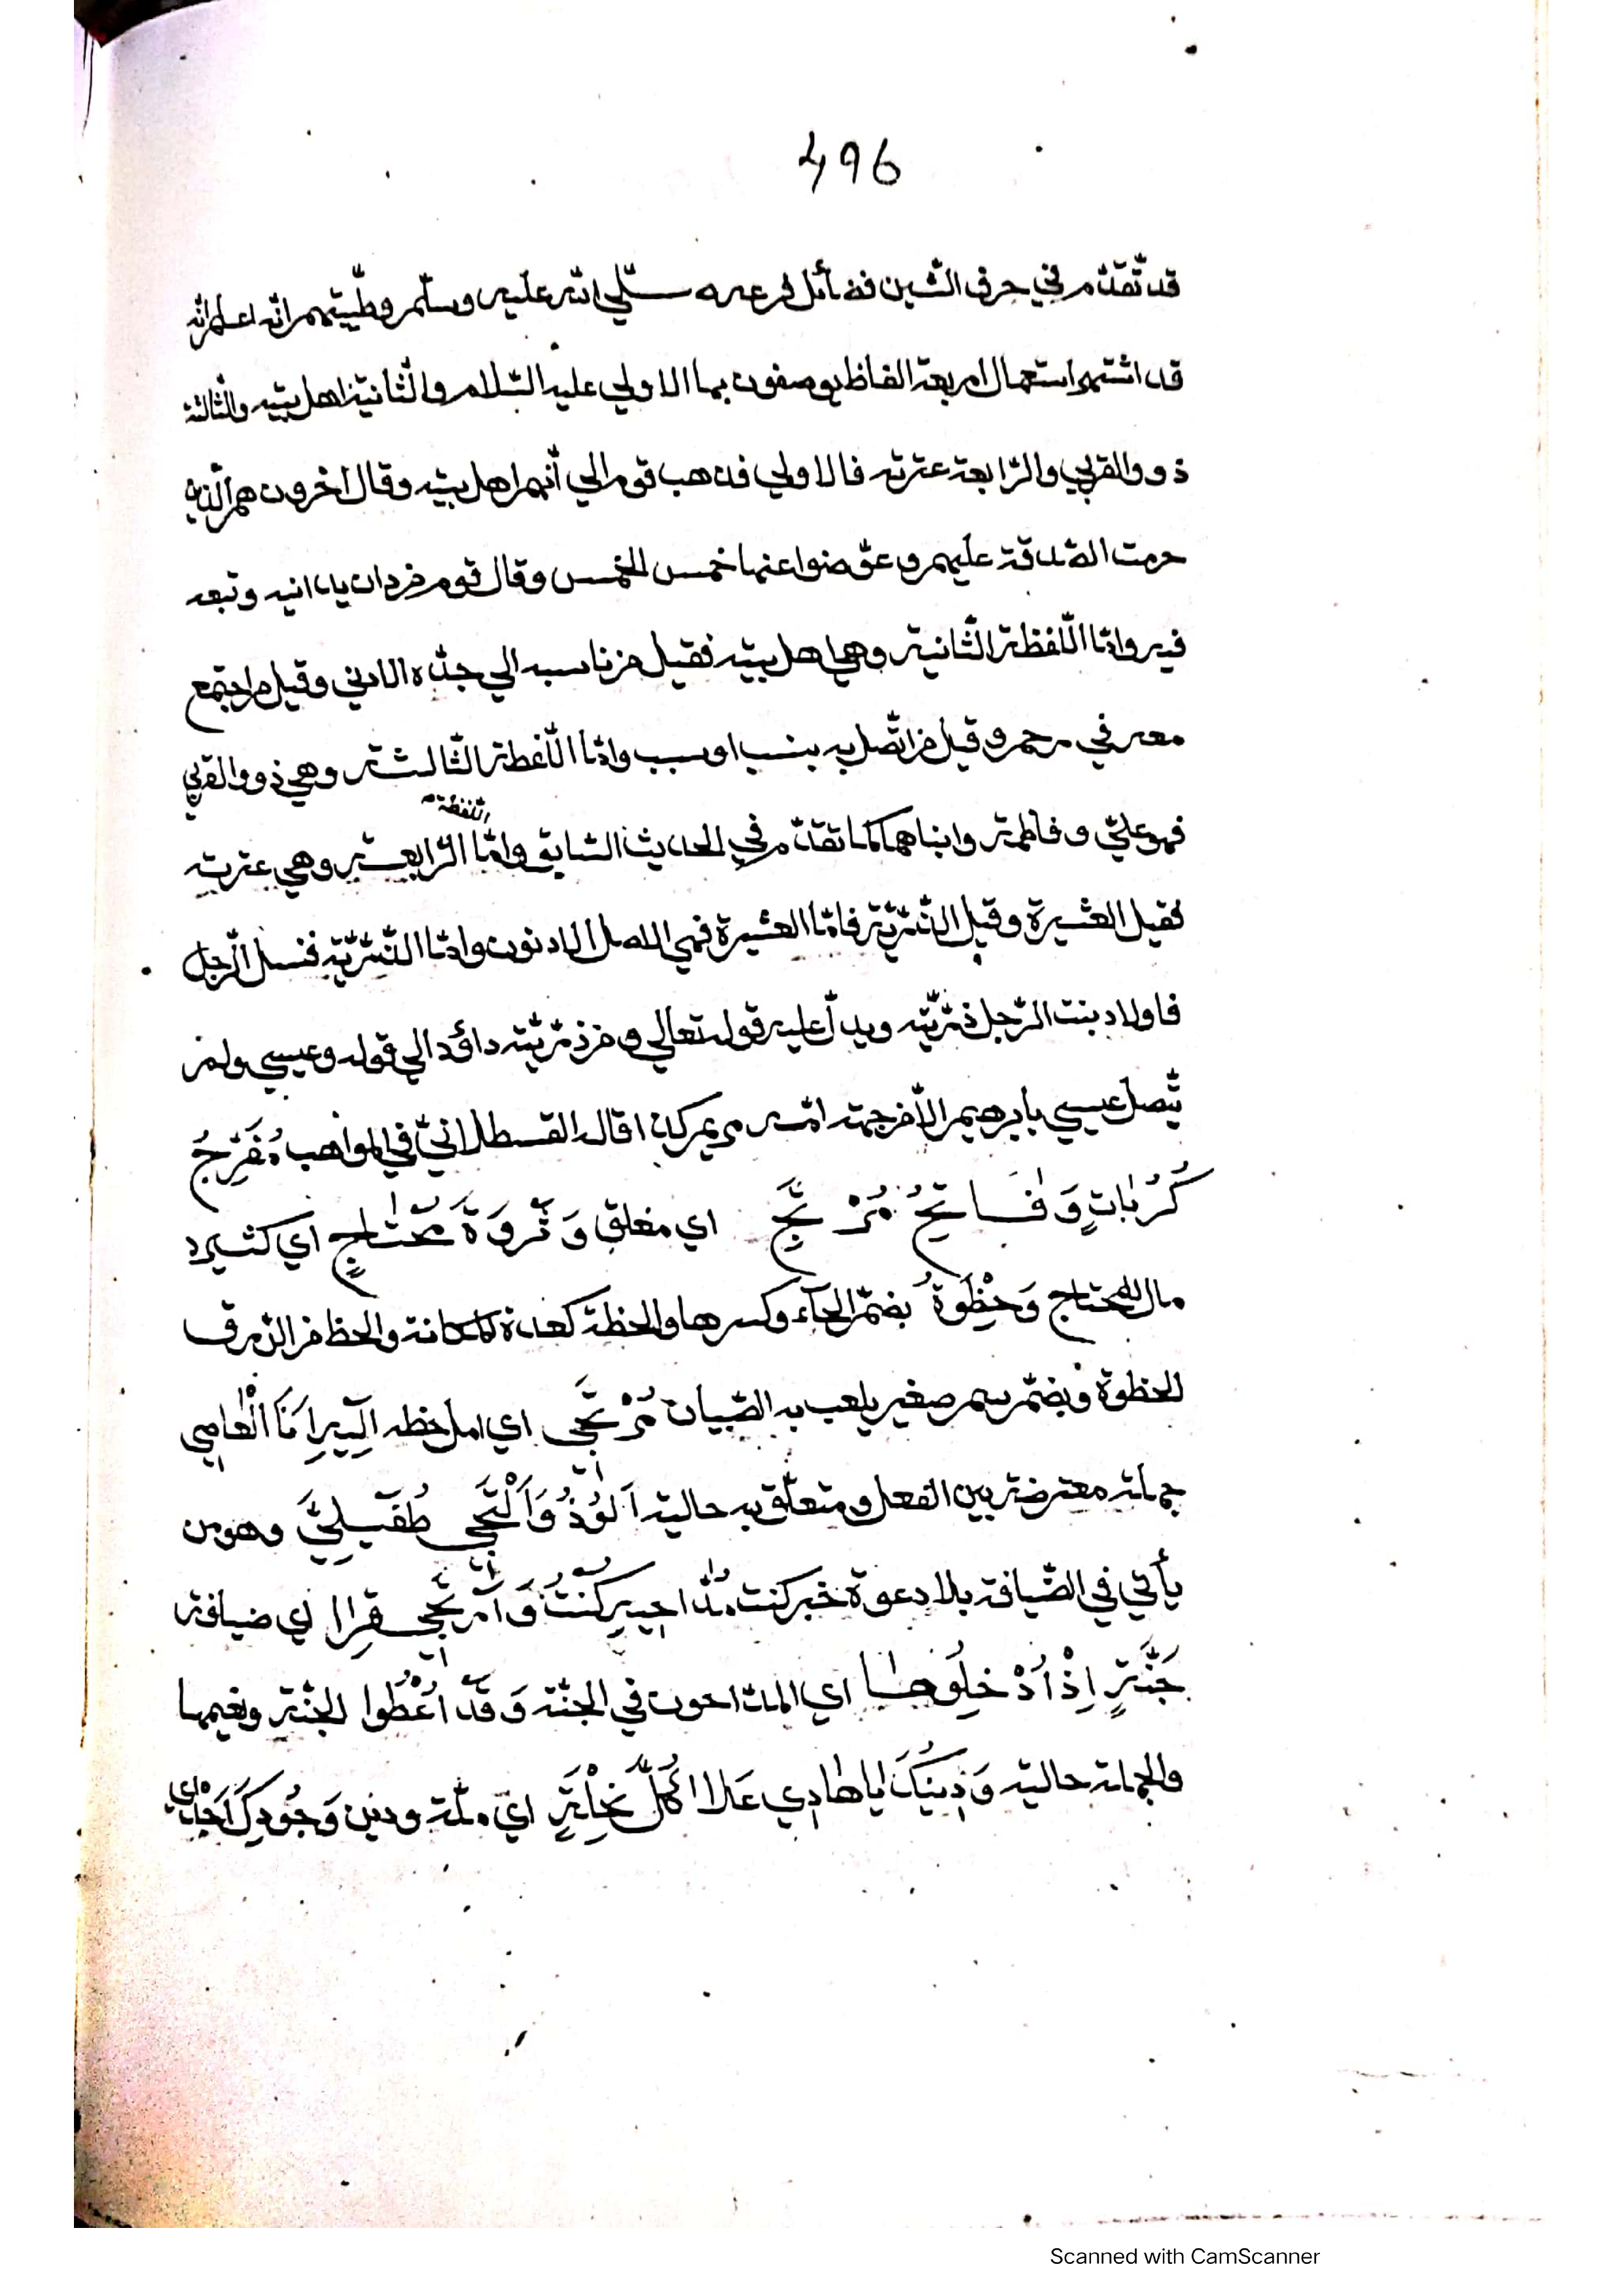 496
قد تقدّم في حرف الشين فضائل فرعه صلّي الله عليه وسلّم وطيّبهم انّه اعلم انّه
قد اشتهر استعمال اربعة الفاظ يوصفون بها الاولي عليه السّلام والثّانية اهل بيته والثالثة
ذوو القربي والرّابعة عترته فالاولي فذهب قوم الي أنّهم اهل بيته وقال اخرون هم الّذين
حرمت الصّدقة عليهم وعوّضوا عنها خمس الخمس وقال قوم من دان بدينه وتبعه
فيه وامّا اللّفظة الثّانية وهي اهل بيته فقيل من ناسبه الي جدّه الادني وقيل من اجتمع
معه في رحم وقيل من اتّصل به بنسب او سبب وامّا اللّفظة الثّالثة وهي ذوو القربي
فهو عليّ وفاطمة وابناهما كما تقدّم في الحديث السّابق وامّا اللّفظة الرّابعة وهي عترته
فقيل العشيرة وقيل الذّرّيّة فامّا العشيرة فهي الاهل الادنون وامّا الذّرّيّة فنسل الرّجل
فاولاد بنت الرّجل ذرّيّته ويدلّ عليه قوله تعالي ومن ذرّيّته داؤد الي قوله وعيسي ولم
يتّصل عيسي بابرهيم الّا من جهة امّه مريم كذا قاله القسطلانيّ في المواهب مُفَرِّجُ
كُرُبَاتٍ وَفَاتِحُ مُرْتَجٍ اي مغلق وَثَرْوَةُ مُحْتَاجٍ اي كثير
مال المحتاج وَحُِظْوَةُ بضمّ الحآء وكسرها والحظة كعدة المكانة والحظ من الرّزق
الحظوة وبضمّ سهم صغير يلعب به الصّبيان مُرْتَجَى اي امل حظه اِلَيْهِ اَنَا الْعَاصِي
جملة معترضة بين الفعل ومتعلّق به حالية اَلُوذُ وَاَلْتَجِي طُفَيْلِيَّ وهو من
يأتي في الضّيافة بلا دعوة خبر كنت مُدَّاحِيهِ كُنْتُ وَاَرْتَجِي قِرَا اي ضيافة
جَنَّةٍ اِذْ اُدْخِلُوهَا اي المدّاحون في الجنّة وَقَدْ اُعْطُوا الجنّة ونعيمها
والجملة حالية وَدِينُكَ يا هَادِي عَلَا كُلَّ نِحْلَةٍ اي ملّة ودين وَجُودُكَ اَجْدَى اي
Scanned with CamScanner